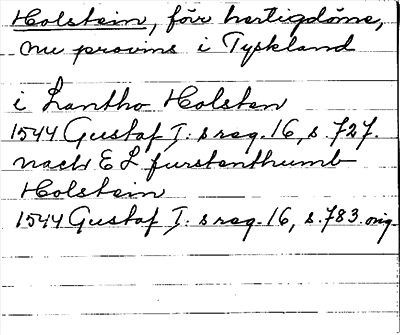 Holstein, förr hertigdöme,
nu provins i Tyskland
i Lantho Holsten
1544 Gustaf I:s reg. 16, s. 727.
nach E L furstenthumb
Holstein
1544 Gustaf I:s reg. 16, s. 783. orig.